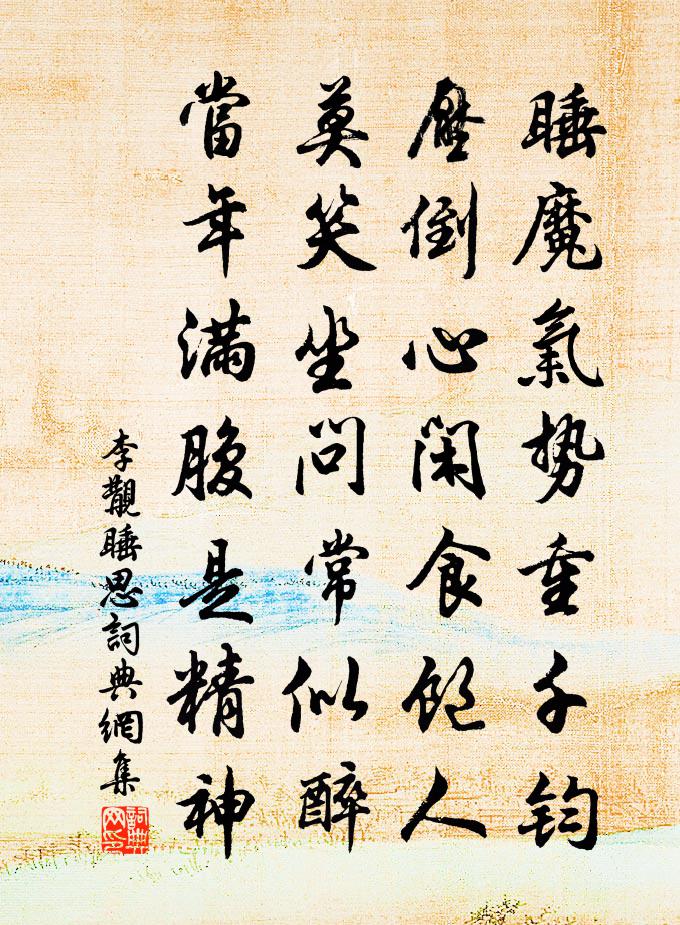 睡魔氣勢重千鈞
壓倒心閑食飽人
莫笑坐問常似醉
當年滿腹是精神
李覯睡思詞典網集
詞典
网印